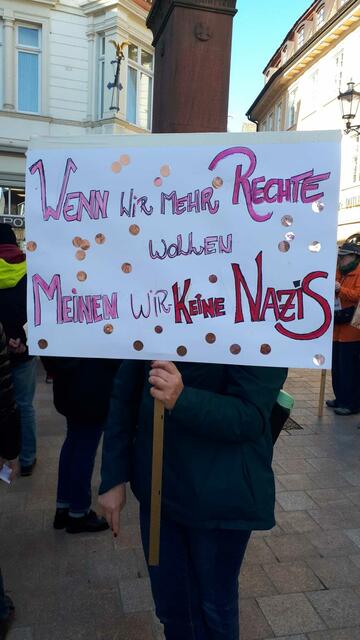 Wenn wir mehr Rechte
wollen
Meinen wir Keine Nazis